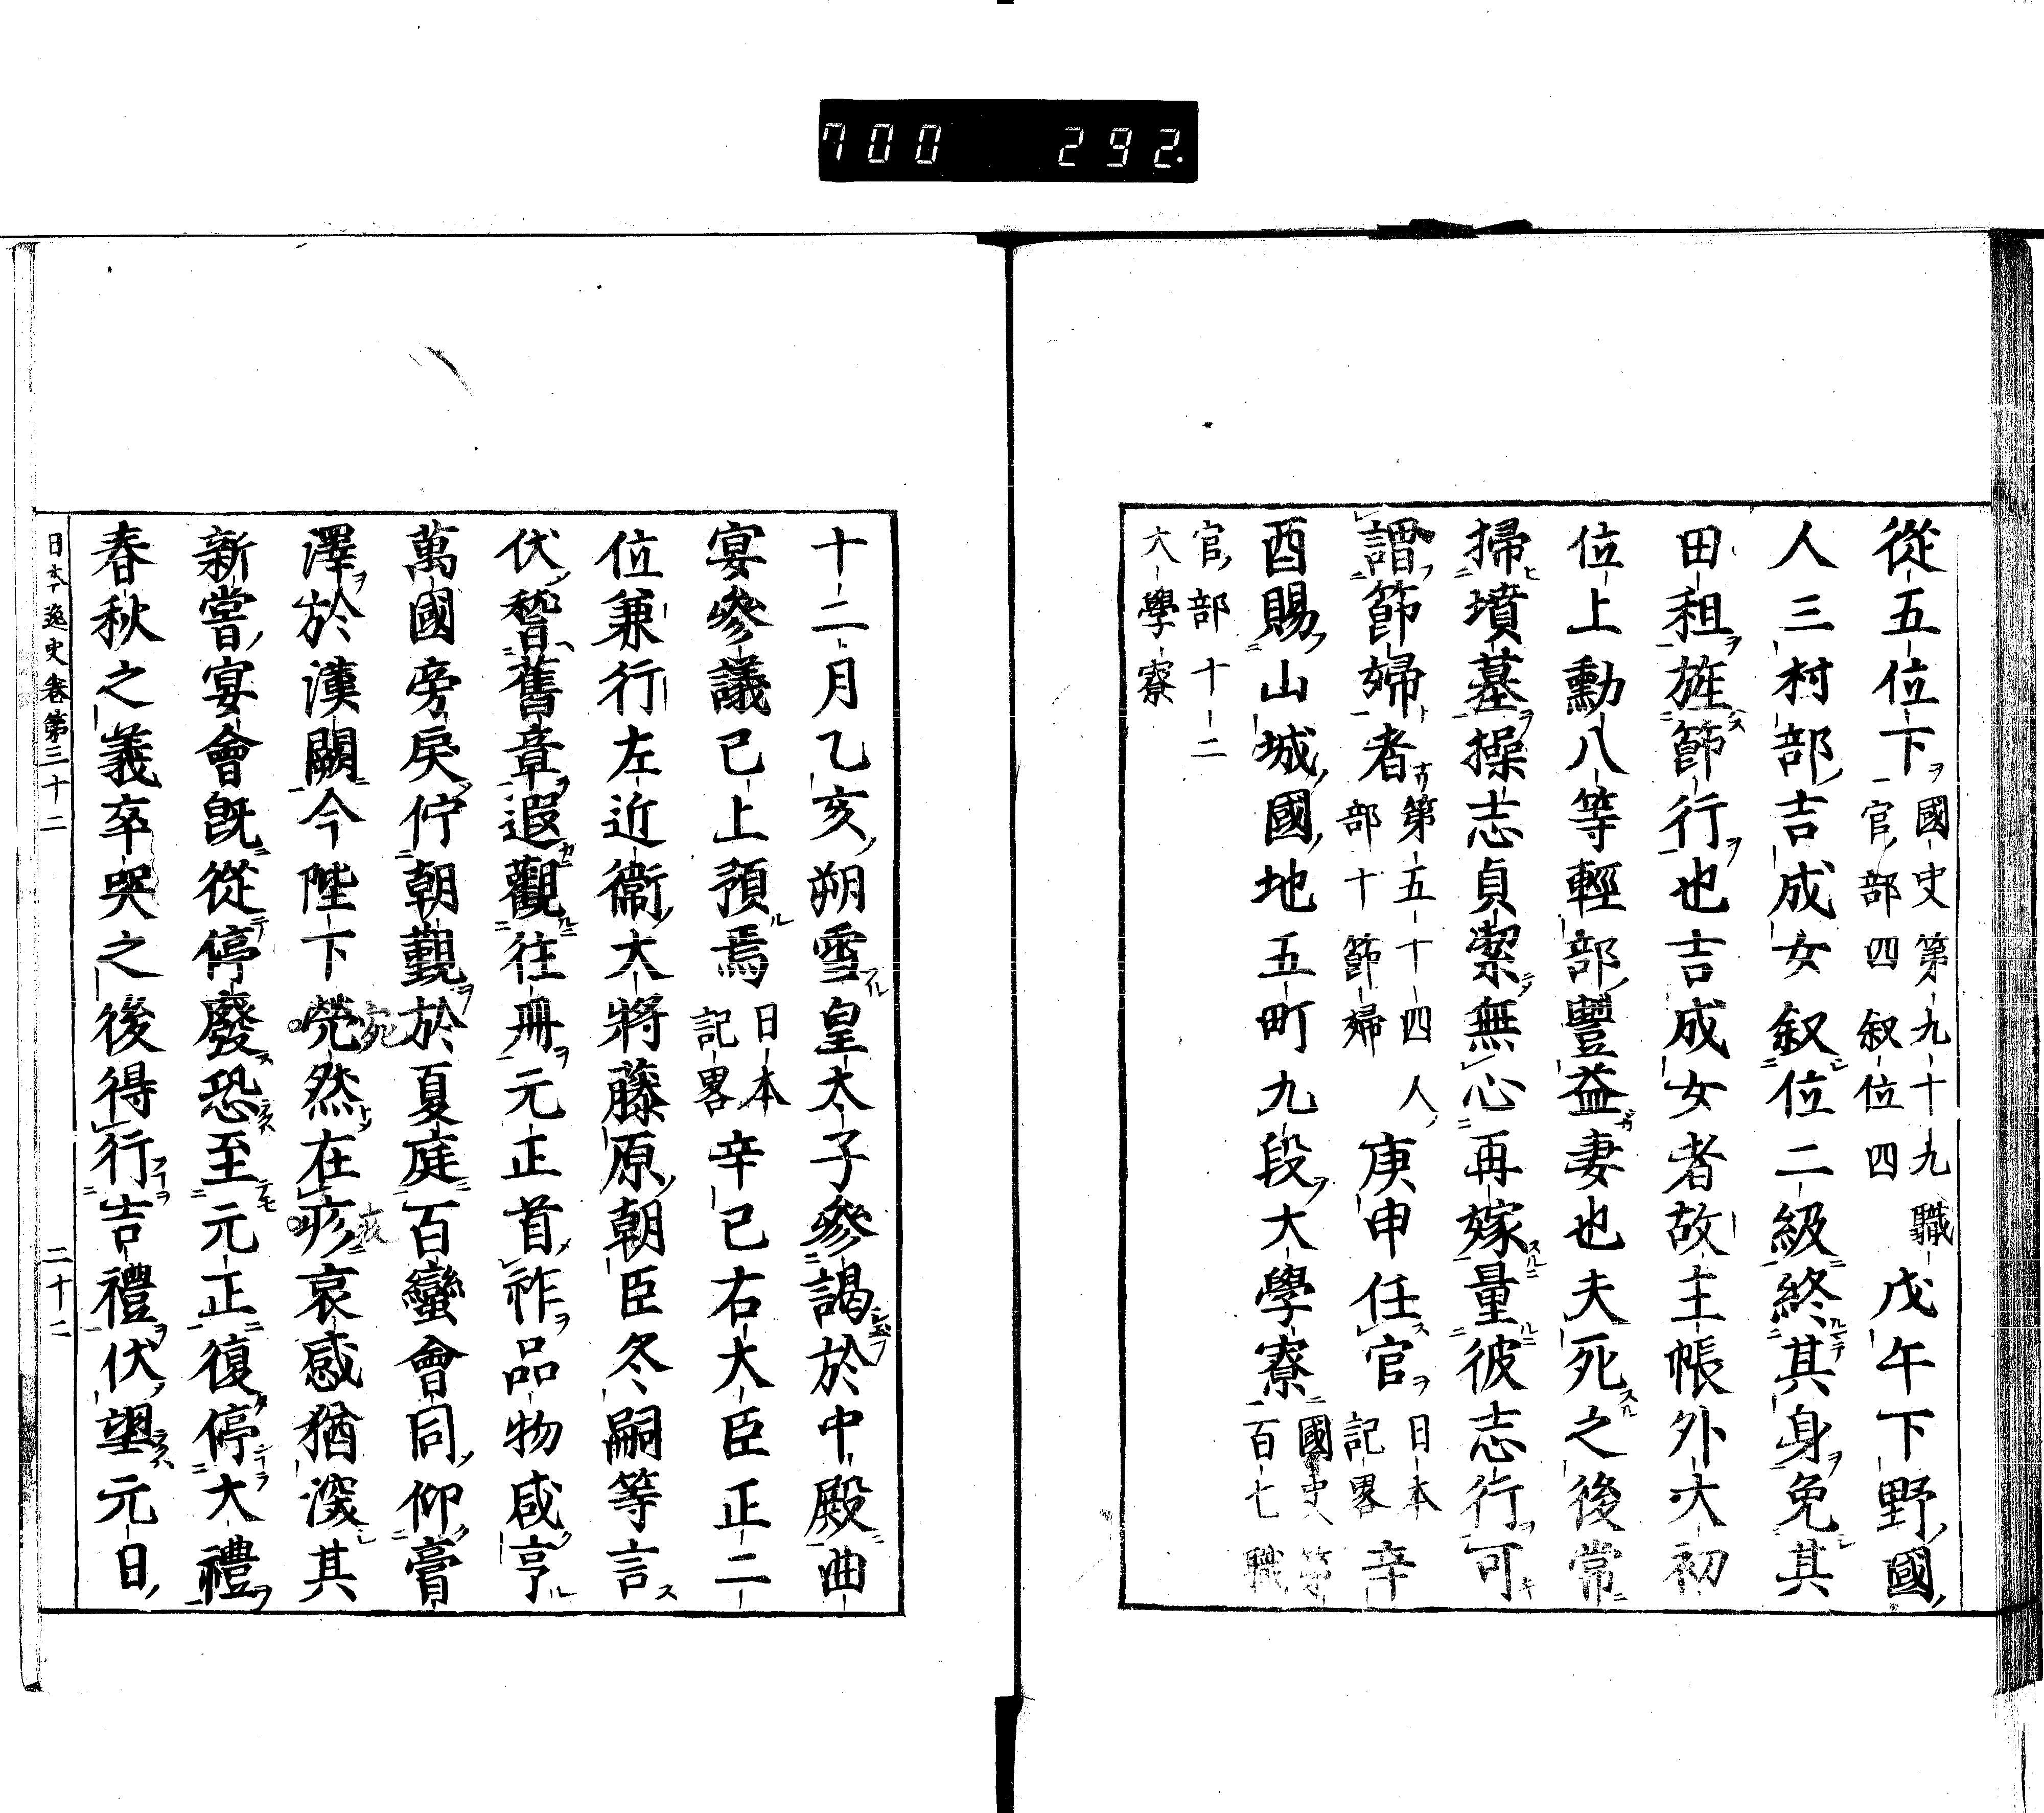 700 292.
從五位下國史第九十九職官部四叙位四戊午下野國
人三村部吉成女叙位二級終其身免其
田租旌節行也吉成女者故主帳外大初
位上勳八等輕部豐益妻也夫死之後常
掃墳墓操志貞潔無心再嫁量彼志行可
謂節婦者第五十四人部十節婦庚申任官日本記畧辛
酉賜山城國地五町九段大學寮國史第百七職
官部十二大學寮
十二月乙亥朔雪皇太子參謁於中殿曲
宴參議已上預焉日本記畧辛巳右大臣正二
位兼行左近衞大將藤原朝臣冬嗣等言
伏稽舊章遐觀往冊元正首祚品物咸亨
萬國旁戻佇朝覲於夏庭百蠻會同仰膏
澤於漢闕今陛下煢然在疚哀感猶深其
新嘗宴會既從停廢恐至元正復停大禮
春秋之義卒哭之後得行吉禮伏望元日
日本逸史卷第三十二 二十二